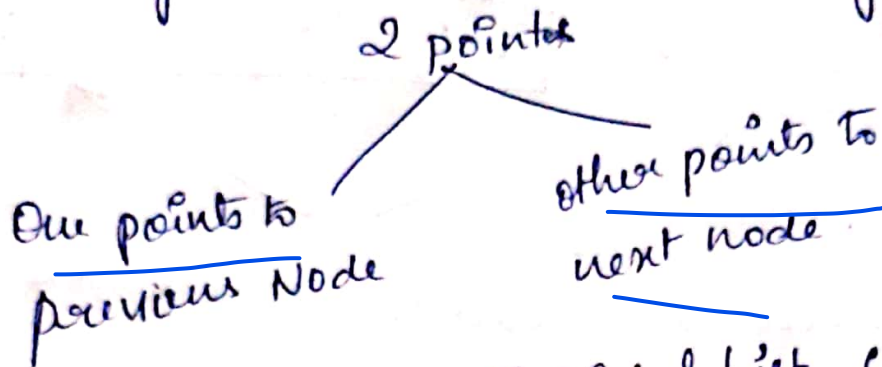 2 pointes
One points to
previous Node
other points to
next node